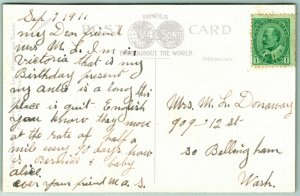 Sep 7, 1911
POST CARD
FAMOUS
& SONS
THROUGHOUT THE WORLD.
my Dear friend
mrs M. L. I'm in
Victoria that is my
Birthday present of
my ants is a long this
place is quit English
you know they move
at the rate of half a
mile every 30 days how
is Bernice & baby
alice
ever your friend M. A. S.
Mrs. M. L. Donaway
909 - 12 st
So Bellingham
Wash.